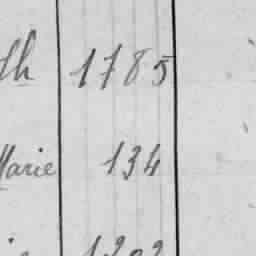 th 1785
Marie 134